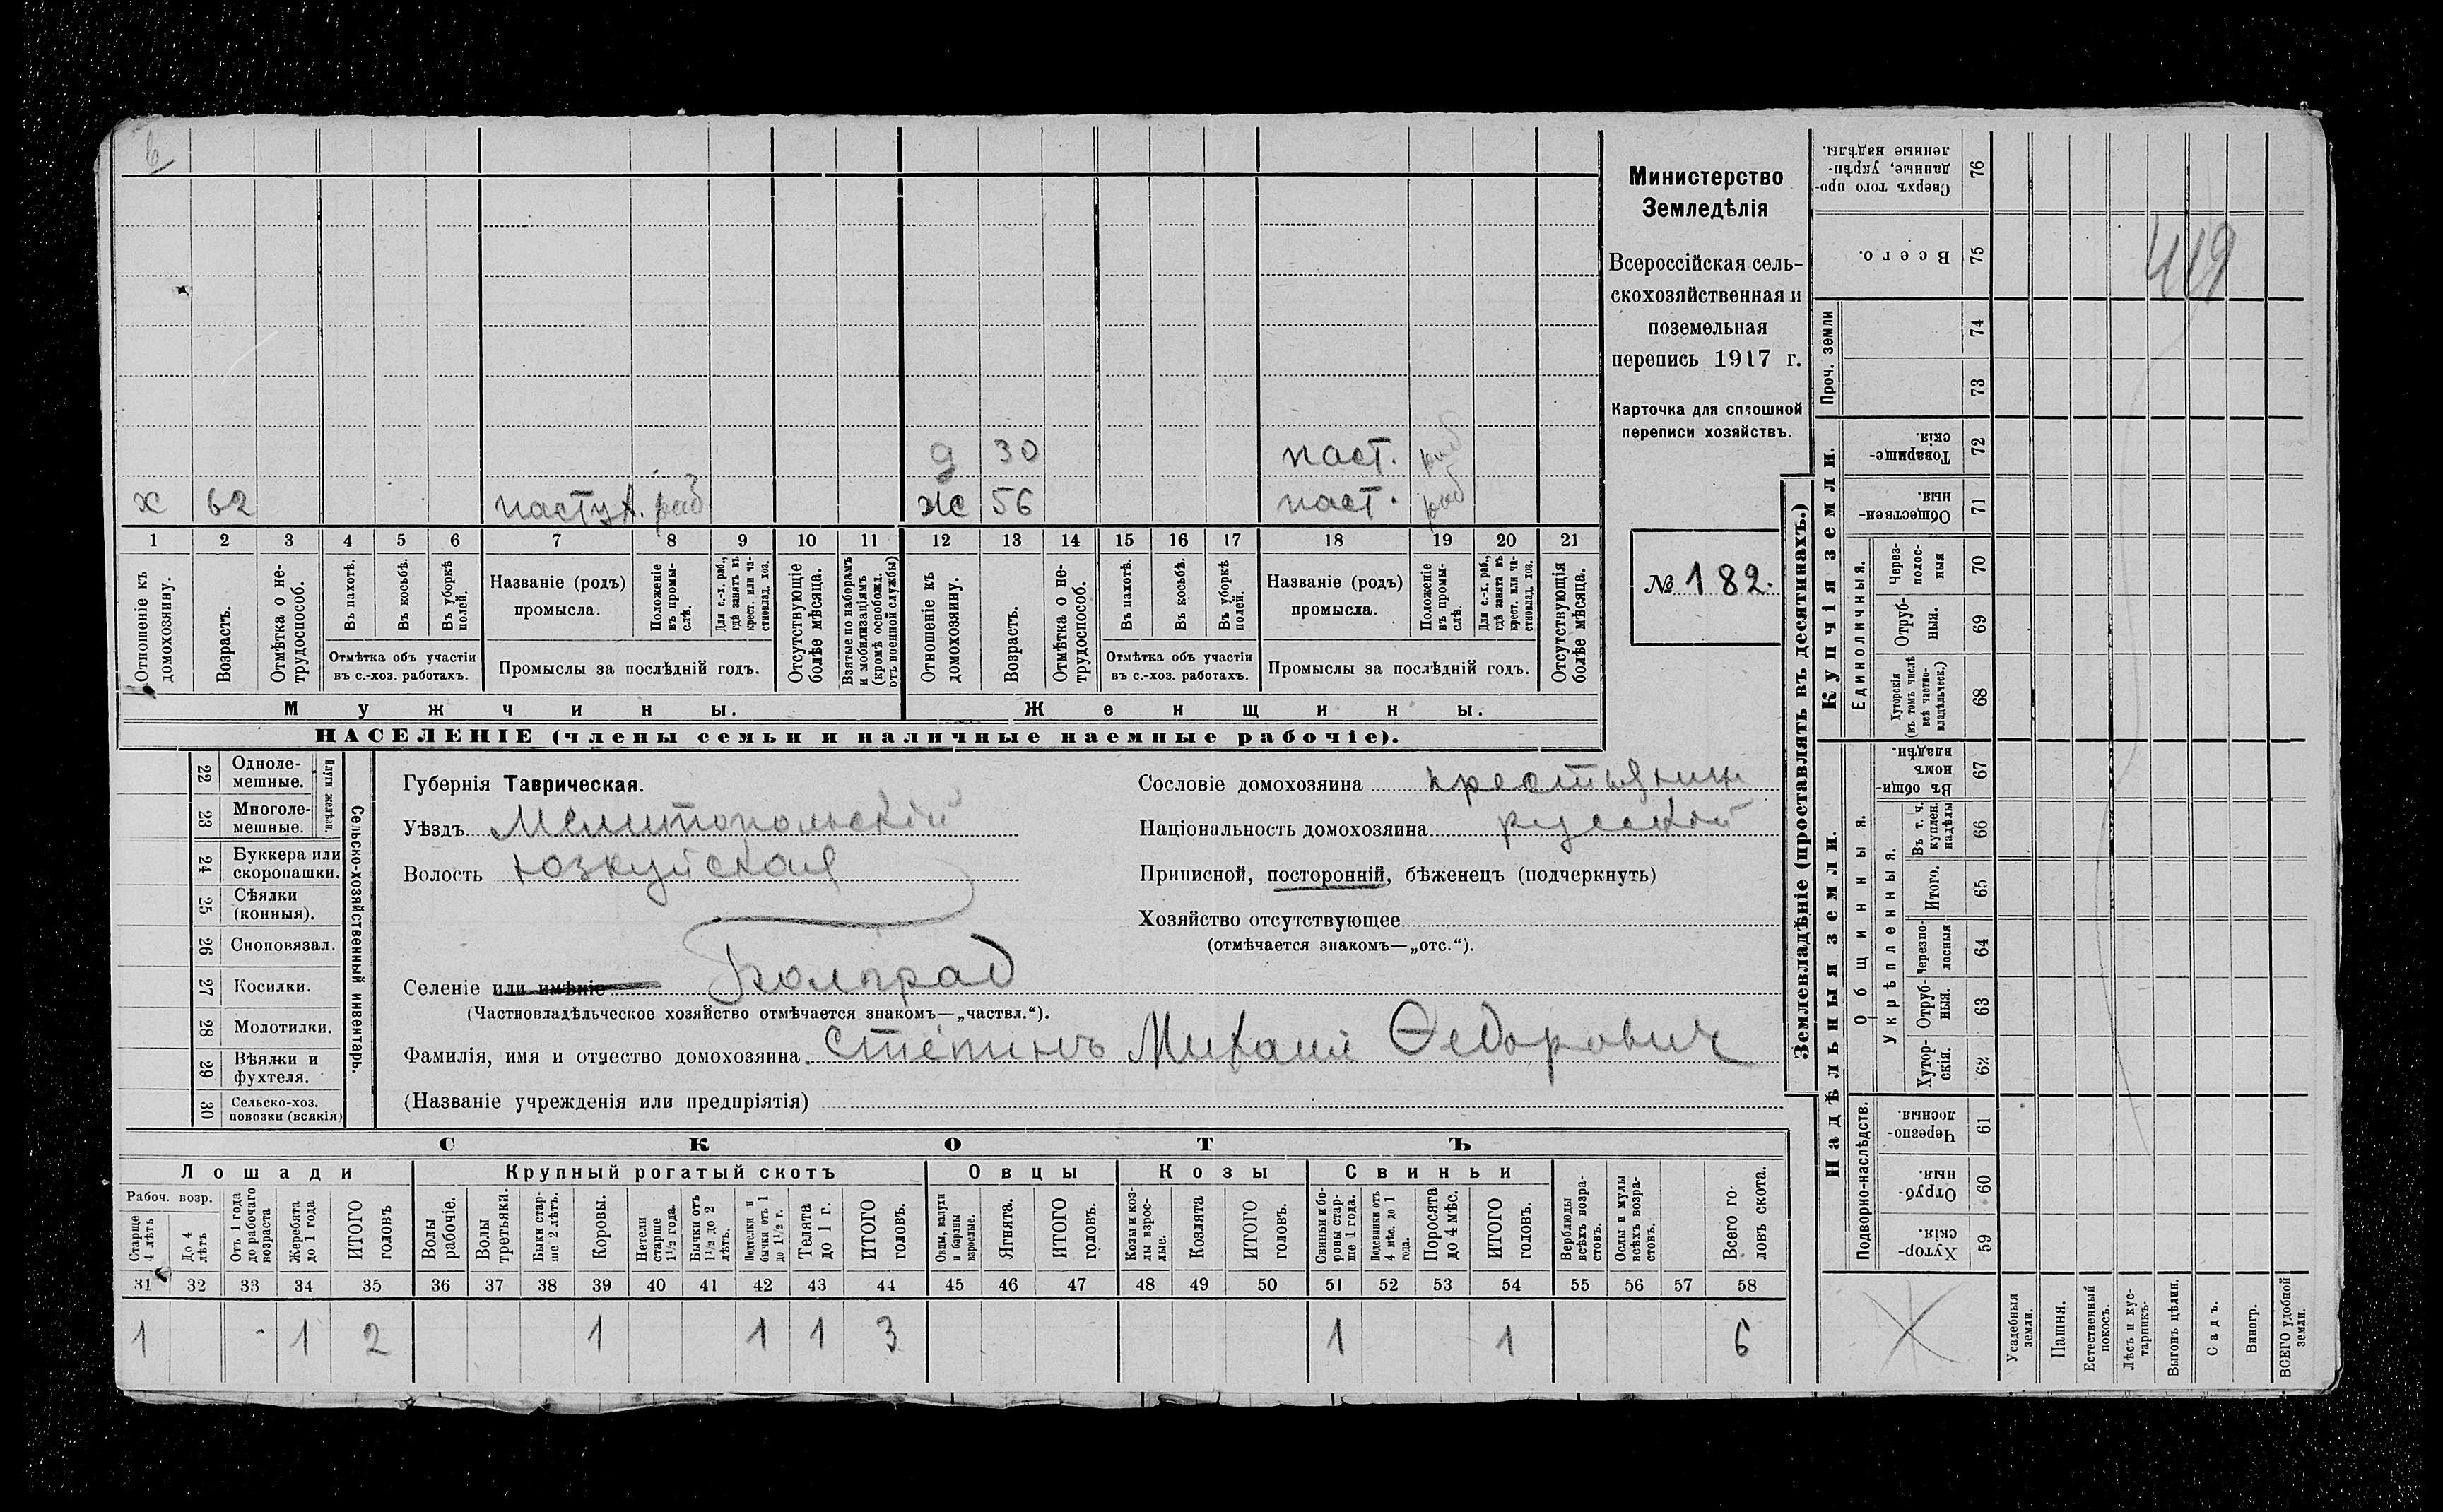 Министерство
Земледѣлія
Всероссійская сель-
скохозяйственная и
поземельная
перепись 1917 г.
Карточка для сплошной
переписи хозяйствъ.
№ 182.
419
д 30 паст. раб
х 62 пастух. раб. ж 56 паст. раб
1 2 3 4 5 6 7 8 9 10 11 12 13 14 15 16 17 18 19 20 21
Отношеніе къ домохозяину.
Возрастъ.
Отмѣтка о не-трудоспособ.
Въ пахотѣ.
Въ косьбѣ.
Въ уборкѣ полей.
Отмѣтка объ участіи
въ с.-хоз. работахъ.
Названіе (родъ)
промысла.
Положеніе въ промы-слѣ.
Для с.-х. раб., гдѣ занятъ въ крест. или ча-стновлад. хоз.
Промыслы за послѣдній годъ.
Отсутствующіе болѣе мѣсяца.
Взятые по наборамъ и мобилизаціямъ (кромѣ освобожд. отъ военной службы)
Отношеніе къ домохозяину.
Возрастъ.
Отмѣтка о не-трудоспособ.
Въ пахотѣ.
Въ косьбѣ.
Въ уборкѣ полей.
Отмѣтка объ участіи
въ с.-хоз. работахъ.
Названіе (родъ)
промысла.
Положеніе въ промы-слѣ.
Для с.-х. раб., гдѣ занята въ крест. или ча-стновлад. хоз.
Промыслы за послѣдній годъ.
Отсутствующія болѣе мѣсяца.
Мужчины. Женщины.
НАСЕЛЕНІЕ (члены семьи и наличные наемные рабочіе).
22 Одноле-мешные.
23 Многоле-мешные.
Плуги желѣзн.
24 Буккера или скоропашки.
25 Сѣялки (конныя).
26 Сноповязал.
27 Косилки.
28 Молотилки.
29 Вѣялки и фухтеля.
30 Сельско-хоз. повозки (всякія)
Сельско-хозяйственный инвентарь.
Губернія Таврическая.
Уѣздъ Мелитопольскій
Волость Юзкуйская
Селеніе или имѣніе Болград
(Частновладѣльческое хозяйство отмѣчается знакомъ—„частвл.“).
Фамилія, имя и отчество домохозяина Степинъ Михаил Ѳедорович
(Названіе учрежденія или предпріятія)
Сословіе домохозяина крестьянин
Національность домохозяина русский
Приписной, посторонній, бѣженецъ (подчеркнуть)
Хозяйство отсутствующее
(отмѣчается знакомъ—„отс.“).
СКОТЪ
Лошади Крупный рогатый скотъ Овцы Козы Свиньи
Рабоч. возр.
Старше 4 лѣтъ
До 4 лѣтъ
Отъ 1 года до рабочаго возраста
Жеребята до 1 года
ИТОГО головъ
Волы рабочіе.
Волы третьяки.
Быки стар-ше 2 лѣтъ.
Коровы.
Нетели старше 1½ года.
Бычки отъ 1½ до 2 лѣтъ.
Подтелки и бычки отъ 1 до 1½ г.
Телята до 1 г.
ИТОГО головъ.
Овцы, валухи и бараны взрослые.
Ягнята.
ИТОГО головъ.
Козы и коз-лы взрос-лые.
Козлята
ИТОГО головъ.
Свиньи и бо-ровы стар-ше 1 года.
Подсвинки отъ 4 мѣс. до 1 года.
Поросята до 4 мѣс.
ИТОГО головъ.
Верблюды всѣхъ возра-стовъ.
Ослы и мулы всѣхъ возра-стовъ.
Всего го-ловъ скота.
31 32 33 34 35 36 37 38 39 40 41 42 43 44 45 46 47 48 49 50 51 52 53 54 55 56 57 58
1 1 2 1 1 1 3 1 1 6
Землевладѣніе (проставлять въ десятинахъ.)
Купчія земли.
Надѣльныя земли.
Проч. земли
Единоличныя.
Общинныя.
Укрѣпленныя.
Подворно-наслѣдств.
Сверхъ того про-данные, укрѣп-ленные надѣлы. 76
Всего. 75
74
73
Товарище-скія. 72
Обществен-ныя. 71
Через-полос-ныя 70
Отруб-ныя. 69
Хуторскія (въ томъ числѣ всѣ частно-владѣльческ.) 68
Въ общи-номъ владѣн. 67
Въ т. ч. куплен. надѣлы 66
Итого. 65
Черезпо-лосныя 64
Отруб-ныя. 63
Хутор-скія. 62
Черезпо-лосныя. 61
Отруб-ныя. 60
Хутор-скія. 59
Усадебныя земли.
Пашня.
Естественный покосъ.
Лѣсъ и кус-тарникъ.
Выгонъ цѣлин.
Садъ.
Виногр.
ВСЕГО удобной земли.